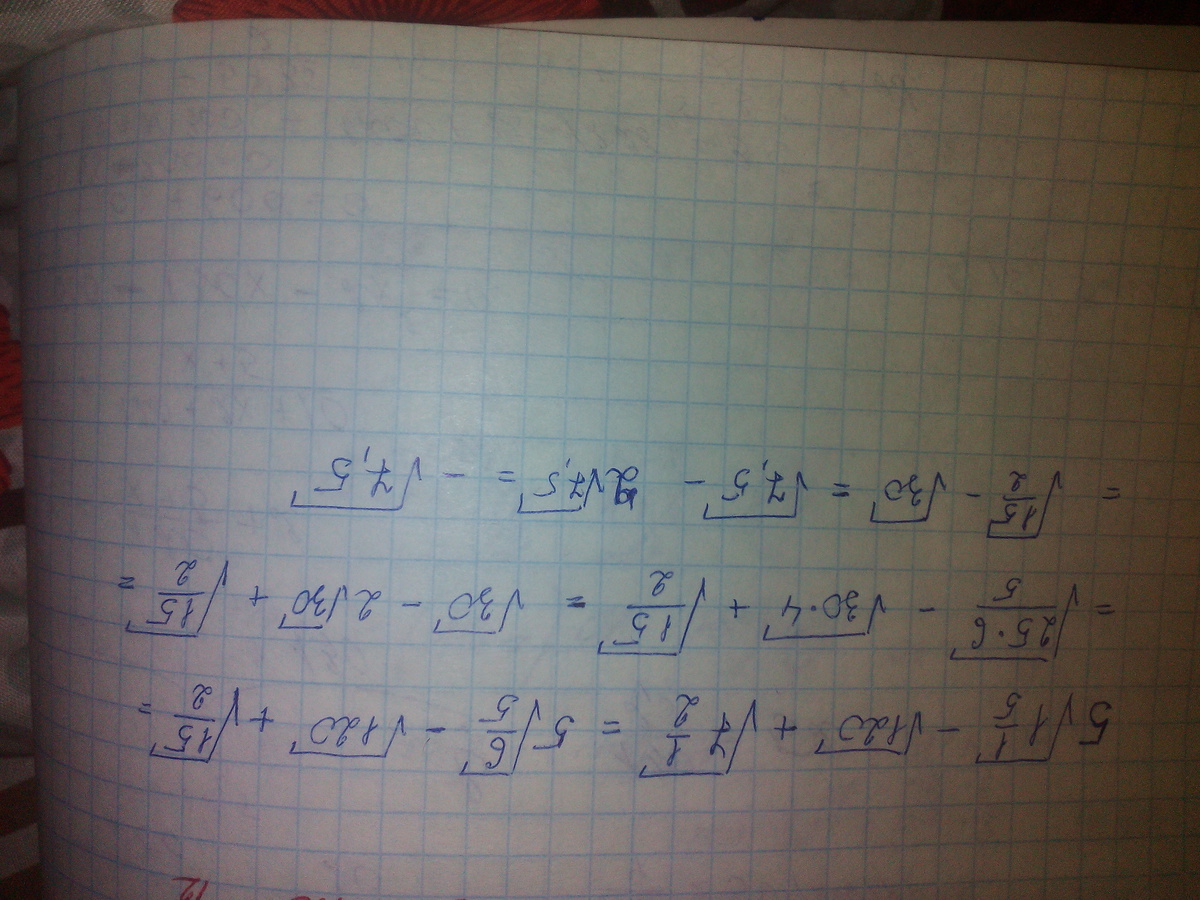 5√1 1/5 − √120 + √7 1/2 = 5√6/5 − √120 + √15/2 =
= √25·6/5 − √30·4 + √15/2 = √30 − 2√30 + √15/2 =
= √15/2 − √30 = √7,5 − 2√7,5 = − √7,5
12